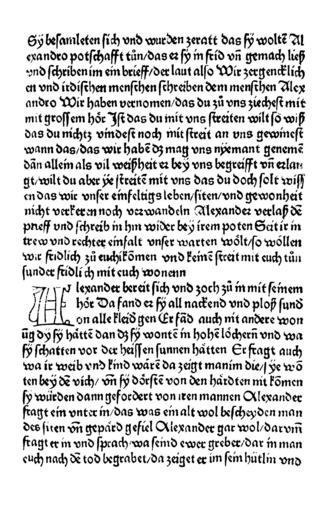 Sy besamleten sich vnd wurden zeratt das sy wolten Al
exandro potschafft tůn/das er sy in frid vn̄ gemach ließ
vnd schriben im ein brieff/der laut also Wir zergencklich
en vnd irdischen menschen schreiben dem menschen Alex
andro Wir haben vernomen/das du zů vns ziechest mit
mit grossem hör Ist das du mit vns streiten wilt so wiß
das du nichtz vindest noch mit streit an vns gewinest
wann das/das wir habē dz mag vns nyemant genemē
dañ allein als vil weißheit er bey vns begreifft vn̄ erlan
gt/wilt du aber ye streitē mit vns das du doch solt wiss
en das wir vnser einfeltigs leben/siten/vnd gewonheit
nicht verkeren noch verwandeln Alexander verlaß dē
prieff vnd schreib in hin wider bey irem poten Seit ir in
trew vnd rechter einfalt vnser warten wölt/so wöllen
wir fridlich zů euch kōmen vnd keinē streit mit euch tůn
sunder fridli ch mit euch wonenn
Alexander bereit sich vnd zoch zů in mit seinem
hör Da fand er sy all nackend vnd ploß sund
on alle kleid gen Er fād auch nit andere won
ūg dy sy hättē dan dz sy wontē in hohē löchern vnd wa
sy schatten vor der heissen sunnen hätten Er fragt auch
wa ir weib vnd kind wärē da zeigt man im die/ ye wo
ten bey dē vich/ vn̄ sy dörftē von den härdten nit kōmen
sy würden dann gefordert von iren mannen Alexander
fragt ein vnter in/das was ein alt wol bescheyden man
des siten vn̄ gepärd gefiel Alexander gar wol/darum̄
fragt er in vnd sprach/wa seind ewer greber/dar in man
euch nach dē tod begrabet/da zeiget er im sein hütlin vnd